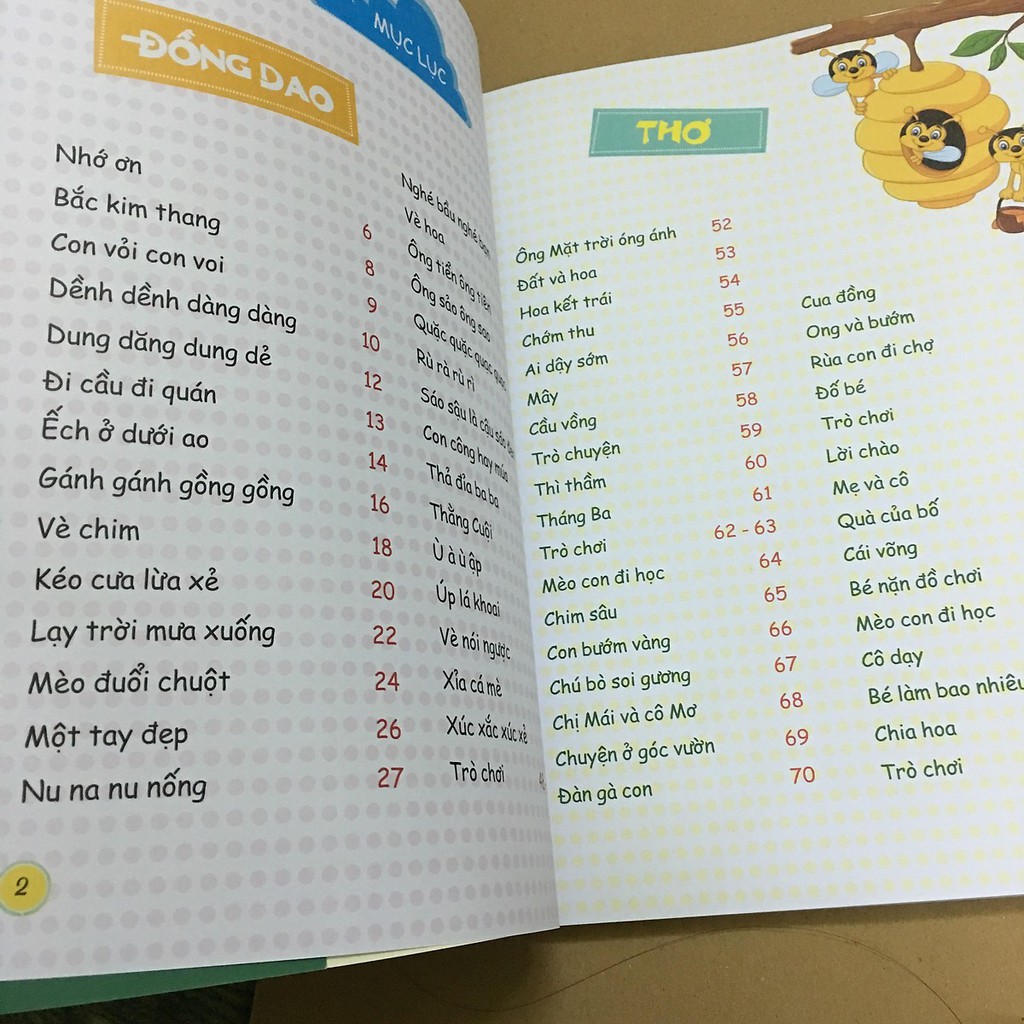 MỤC LỤC
ĐỒNG DAO
Nhớ ơn 6
Bắc kim thang 8
Con vỏi con voi 9
Dềnh dềnh dàng dàng 10
Dung dăng dung dẻ 12
Đi cầu đi quán 13
Ếch ở dưới ao 14
Gánh gánh gồng gồng 16
Vè chim 18
Kéo cưa lừa xẻ 20
Lạy trời mưa xuống 22
Mèo đuổi chuột 24
Một tay đẹp 26
Nu na nu nống 27
Nghé bầu nghé bạn
Vè hoa
Ông tiển ông tiên
Ông sảo ông sao
Quặc quặc quạc quạc
Rù rà rù rì
Sáo sậu là cậu sáo đen
Con công hay múa
Thả đỉa ba ba
Thằng Cuội
Ù à ù ập
Úp lá khoai
Vè nói ngược
Xỉa cá mè
Xúc xắc xúc xẻ
Trò chơi
2
THƠ
Ông Mặt trời óng ánh 52
Đất và hoa 53
Hoa kết trái 54
Chớm thu 55
Ai dậy sớm 56
Mây 57
Cầu vồng 58
Trò chuyện 59
Thì thầm 60
Tháng Ba 61
Trò chơi 62 - 63
Mèo con đi học 64
Chim sâu 65
Con bướm vàng 66
Chú bò soi gương 67
Chị Mái và cô Mơ 68
Chuyện ở góc vườn 69
Đàn gà con 70
Cua đồng
Ong và bướm
Rùa con đi chợ
Đố bé
Trò chơi
Lời chào
Mẹ và cô
Quà của bố
Cái võng
Bé nặn đồ chơi
Mèo con đi học
Cô dạy
Bé làm bao nhiêu
Chia hoa
Trò chơi